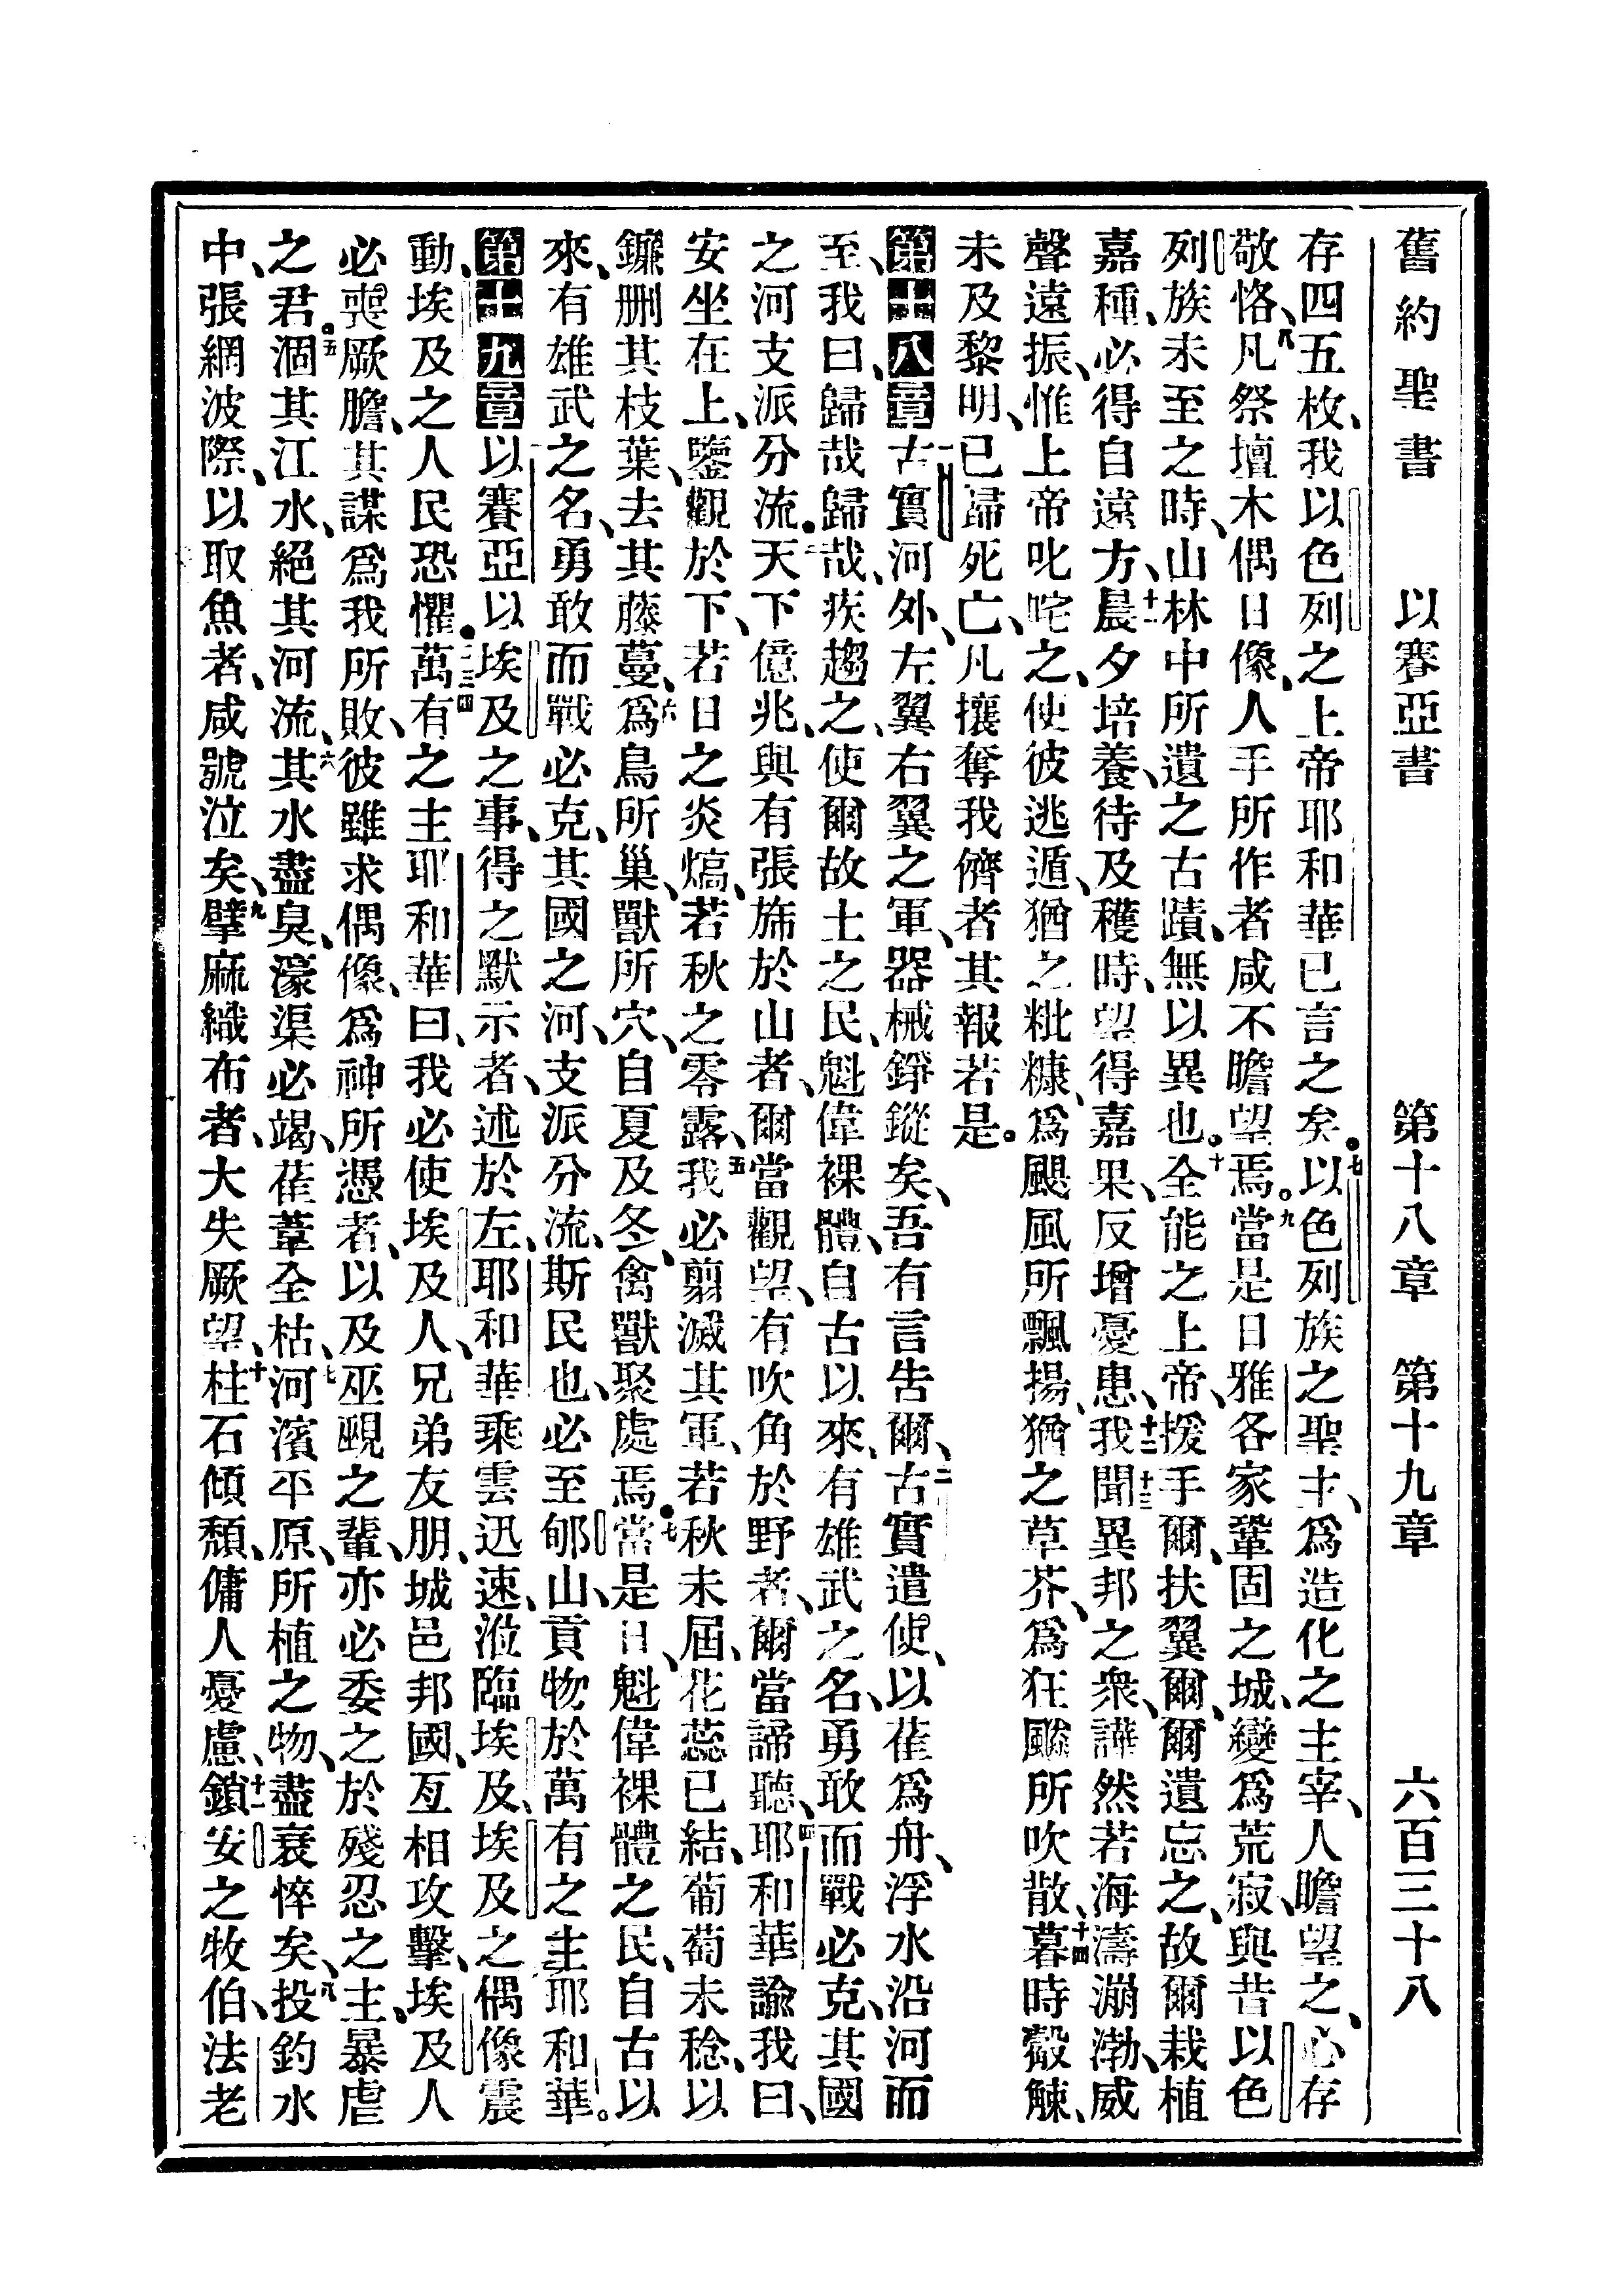 舊約聖書 以賽亞書 第十八章 第十九章 六百三十八
存四五枚、我以色列之上帝耶和華已言之矣。七以色列族之聖主、爲造化之主宰、人瞻望之、心存
敬恪、八凡祭壇木偶日像、人手所作者咸不瞻望焉。九當是日雅各家鞏固之城、變爲荒寂、與昔以色
列族未至之時、山林中所遺之古蹟、無以異也。十全能之上帝、援手爾、扶翼爾、爾遺忘之、故爾栽植
嘉種、必得自遠方、十一晨夕培養、待及穫時、望得嘉果、反增憂患、十二我聞十三異邦之衆、譁然若海濤漰渤、威
聲遠振、惟上帝叱咤之、使彼逃遁、猶之粃糠、爲颶風所飄揚、猶之草芥、爲狂飈所吹散、十四暮時觳觫、
未及黎明、已歸死亡、凡攘奪我儕者、其報若是。
第十八章 一古實河外、左翼右翼之軍、器械錚鏦矣、吾有言告爾、二古實遣使、以萑爲舟、浮水沿河而
至、我曰、歸哉歸哉、疾趨之、使爾故土之民、魁偉裸體、自古以來、有雄武之名、勇敢而戰必克、其國
之河支派分流。三天下億兆、與有張旆於山者、爾當觀望、有吹角於野者、爾當諦聽、四耶和華諭我曰、
安坐在上、鑒觀於下、若日之炎熇、若秋之零露、五我必翦滅其軍、若秋未屆、花蕊已結、葡萄未稔、以
鐮删其枝葉、去其藤蔓、六爲鳥所巢、獸所穴、自夏及冬、禽獸聚處焉。七當是日、魁偉裸體之民、自古以
來、有雄武之名、勇敢而戰必克、其國之河、支派分流、斯民也、必至郇山、貢物於萬有之主耶和華。
第十九章 一以賽亞以埃及之事、得之默示者、述於左、耶和華乘雲迅速、涖臨埃及、埃及之偶像震
動、埃及之人民恐懼。二三四萬有之主耶和華曰、我必使埃及人、兄弟友朋、城邑邦國、互相攻擊、埃及人
必喪厥膽、其謀爲我所敗、彼雖求偶像、爲神所憑者、以及巫覡之輩、亦必委之於殘忍之主、暴虐
之君。五涸其江水、絕其河流、六其水盡臭、濠渠必竭、萑葦全枯、七河濱平原、所植之物、盡衰悴矣、八投釣水
中、張網波際、以取魚者、咸號泣矣、九擘麻織布者、大失厥望、十柱石傾頹、傭人憂慮、十一鎖安之牧伯、法老